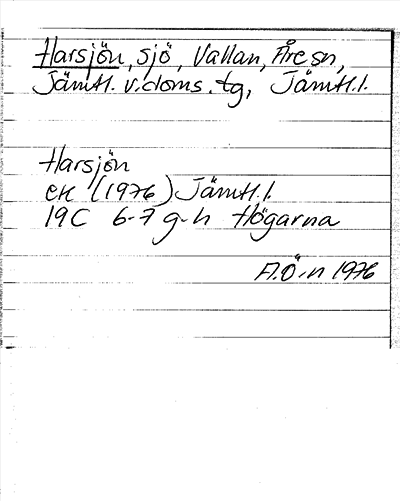 Harsjön, sjö, Vallan, Åre sn,
Jämtl. v. doms. tg, Jämtl. l.
Harsjön
ek (1976) Jämtl. l.
19C 6-7 g-h Högarna
A.Ö-n 1976